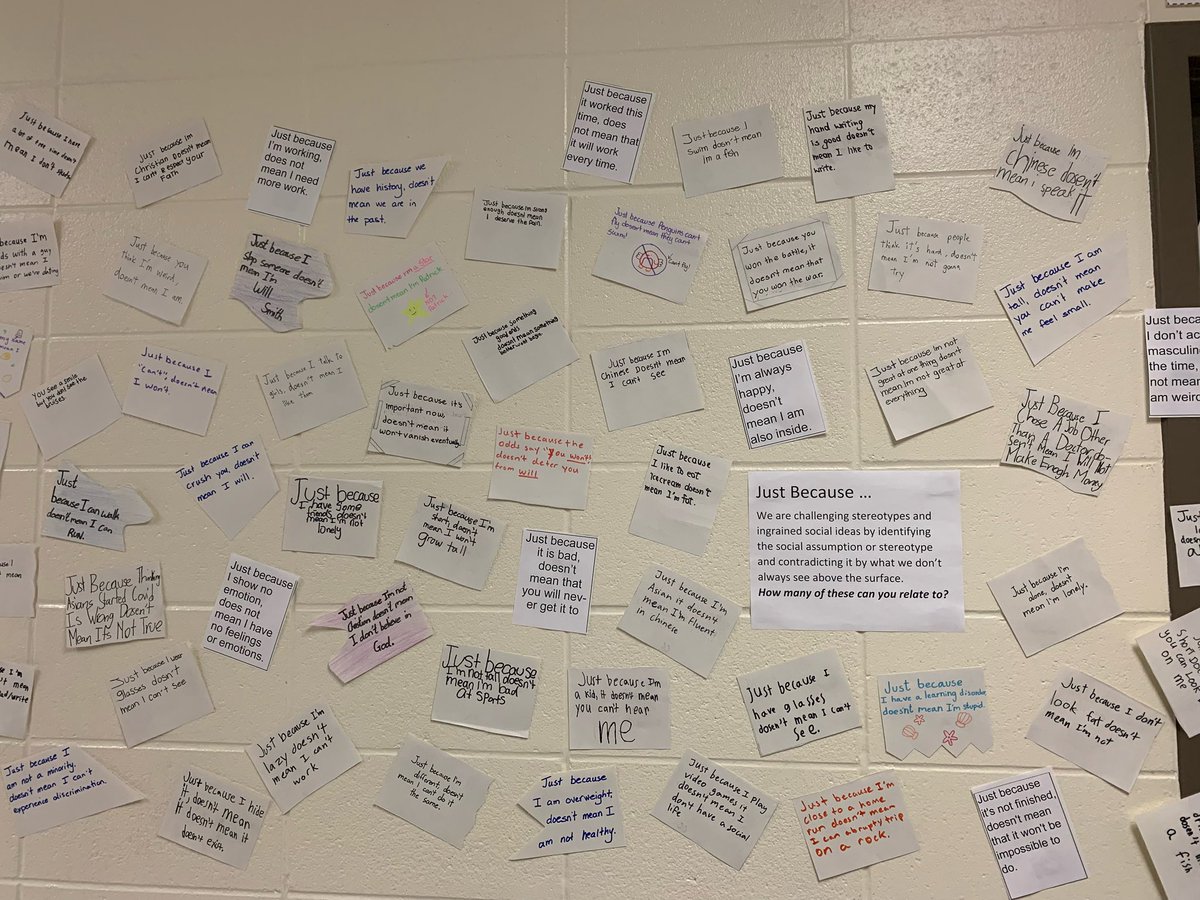 Just because I have
a lot of free time doesn't
mean I don't study
Just because I'm
Christian doesn't mean
I can't respect your
Faith
Just because
I'm working,
does not
mean I need
more work.
Just because we
have history, doesn't
mean we are in
the past.
Just because I'm strong
enough doesn't mean
I deserve the pain.
Just because
it worked this
time, does
not mean that
it will work
every time.
Just because I
swim doesn't mean
I'm a fish
Just because my
hand writing
is good doesn't
mean I like to
write.
Just because I'm
Chinese dosen't
mean I speak it
because I'm
with a guy
doesn't mean I
or we're dating
Just because you
think I'm weird,
doesn't mean I am
Just because I
slap someone doesn't
mean I'm
Will
Smith
Just because I'm a Star
doesn't mean I'm Patrick
NOT
Patrick
Just because Penguins can't
fly doesn't mean they can't
Swim!
Can't fly!
Just because you
won the battle, it
doesn't mean that
you won the war.
Just because people
think it's hard, doesn't
mean I'm not gonna
try
Just because I am
tall, doesn't mean
you can't make
me feel small.
Just because something
good ends
doesn't mean something
better won't begin.
my name
mean I
You see a smile
but you don't see the
bruises
Just because I
"can't", doesn't mean
I won't.
Just because I talk to
girls, doesn't mean I
like them
Just because it's
important now,
doesn't mean it
won't vanish eventually.
Just because I'm
Chinese Doesn't mean
I can't see
Just because
I'm always
happy,
doesn't
mean I am
also inside.
Just because I'm not
great at one thing doesn't
mean I'm not great at
everything
Just beca
I don't ac
masculin
the time,
not mea
am weird
Just Because I
Chose A Job Other
Than A Doctor, do-
sen't Mean I Will Not
Make Enough Money
Just because the
odds say "you won't"
doesn't deter you
from will
Just
because I can walk
doesn't mean I can
RUN.
Just because I can
crush you, doesn't
mean I will.
Just because
I have some
friends doesn't
mean I'm not
lonely
Just because I'm
short, doesn't
mean I won't
grow tall
Just because
I like to eat
icecream doesn't
mean I'm fat.
Just Because ...
We are challenging stereotypes and
ingrained social ideas by identifying
the social assumption or stereotype
and contradicting it by what we don't
always see above the surface.
How many of these can you relate to?
Just because
it is bad,
doesn't
mean that
you will nev-
er get it to
Just Because Thinking
Asians Started Covid
Is Wrong Dosen't
Mean It's Not True
Just because
I show no
emotion,
does not
mean I have
no feelings
or emotions.
Just because I'm not
Christian doesn't mean
I don't believe in
God.
Just because I'm
Asian it doesn't
mean I'm fluent
in chinese
Just because I'm
alone, doesn't
mean I'm lonely.
Just because I wear
glasses dosn't
mean I can't see
Just because
I'm not tall doesn't
mean I'm bad
at sports
Just because I'm
a kid, it doesn't mean
you can't hear
me
Just because I
have glasses
dosen't mean I can't
see.
Just because
I have a learning disorder
doesnt mean I'm stupid.
Just because I don't
look fat doesn't
mean I'm not
you can
on
me
Just because I
am not a minority,
doesn't mean I can't
experience discrimination.
Just because I'm
lazy doesn't
mean I can't
work
Just because I hide
it, doesn't mean
it doesn't mean it
doesn't exist
Just because I'm
different, doesn't
mean I can't do it
the same.
Just because
I am overweight,
doesn't mean I
am not healthy.
Just because I play
video games it
doesn't mean I
don't have a social
life
Just because I'm
close to a home
run doesn't mean
I can abrupty trip
on a rock.
Just because
it's not finished,
doesn't mean
that it won't be
impossible to
do.
a fish